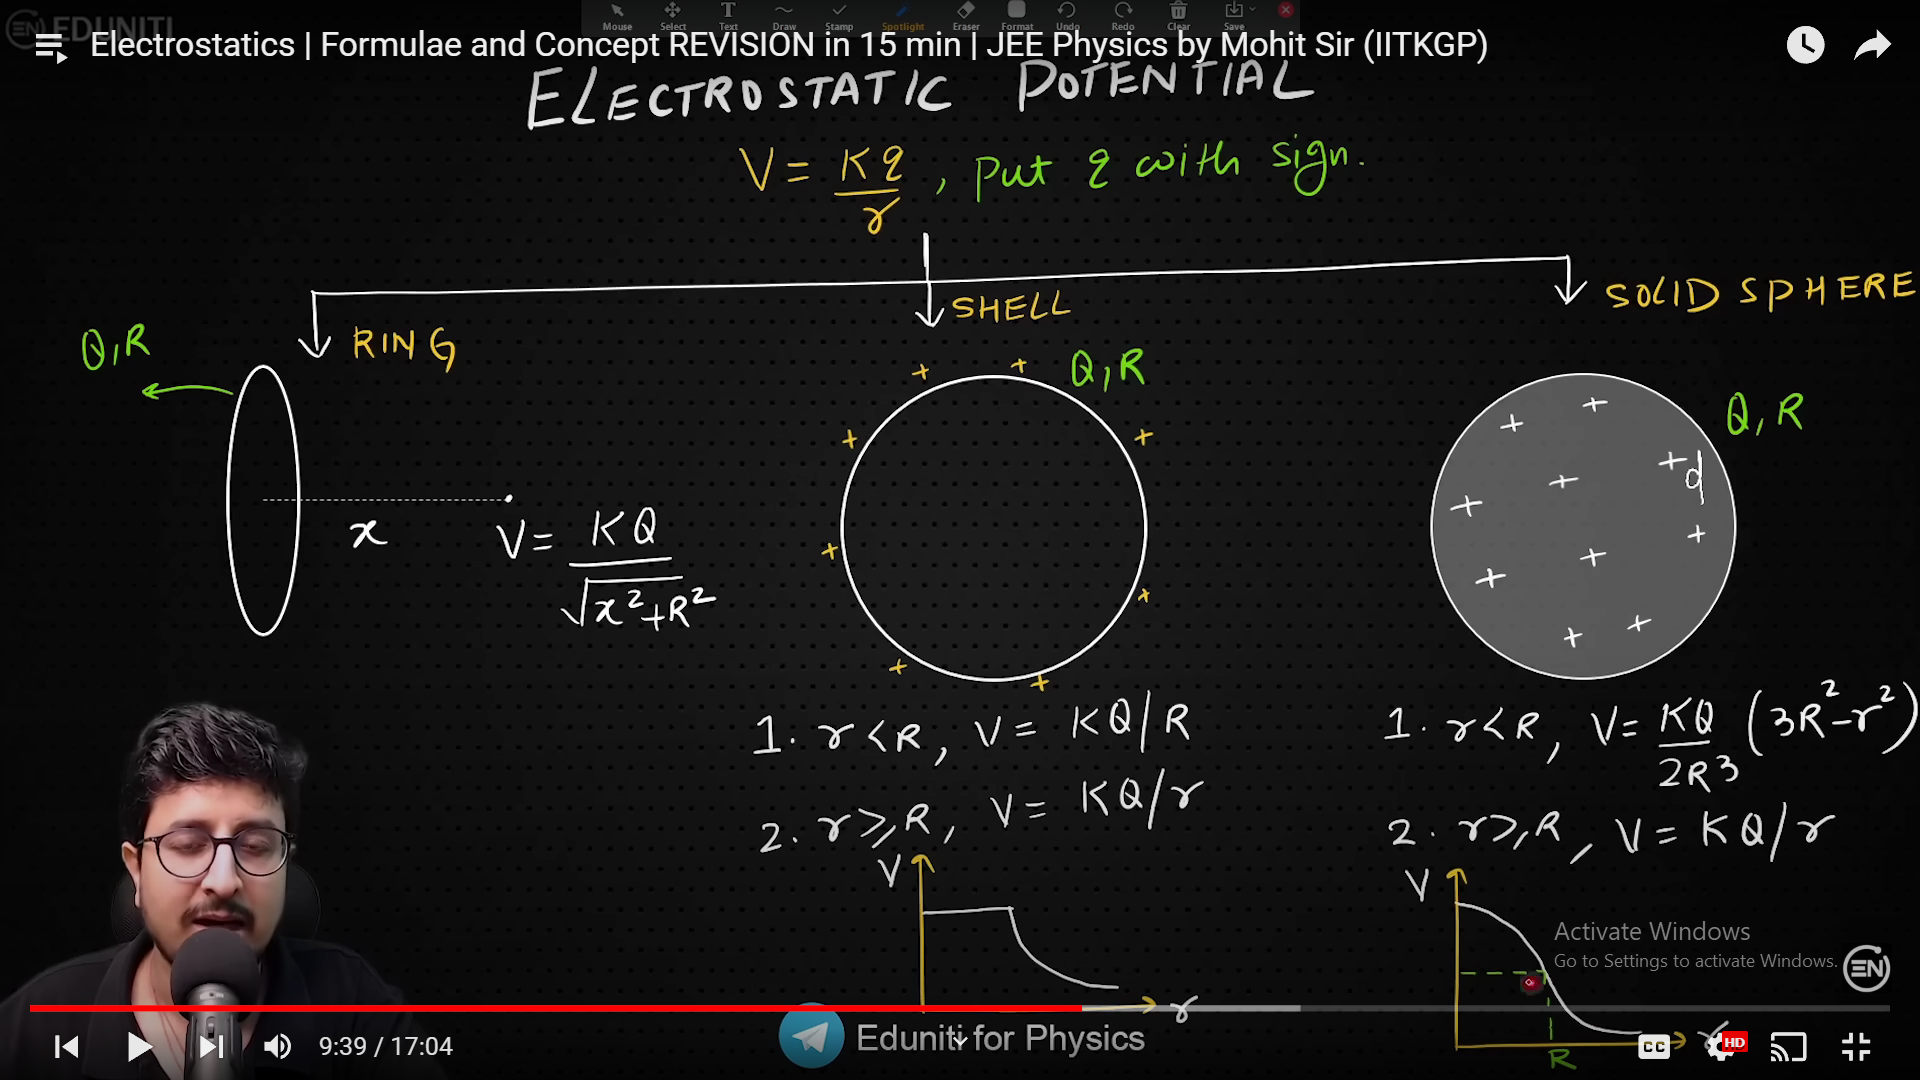 EDUNITI
Mouse Select Text Draw Stamp Spotlight Eraser Format Undo Redo Clear Save
Electrostatics | Formulae and Concept REVISION in 15 min | JEE Physics by Mohit Sir (IITKGP)
ELECTROSTATIC POTENTIAL
V = Kq/r , put q with sign.
RING
SHELL
SOLID SPHERE
Q,R
Q,R
Q,R
d
x
V = KQ/√x²+R²
1. r<R, V = KQ/R
2. r≥R, V = KQ/r
V
r
1. r<R, V = KQ/2R³ (3R²-r²)
2. r≥R, V = KQ/r
V
R
r
Activate Windows
Go to Settings to activate Windows.
EN
9:39 / 17:04
Eduniti for Physics
CC
HD